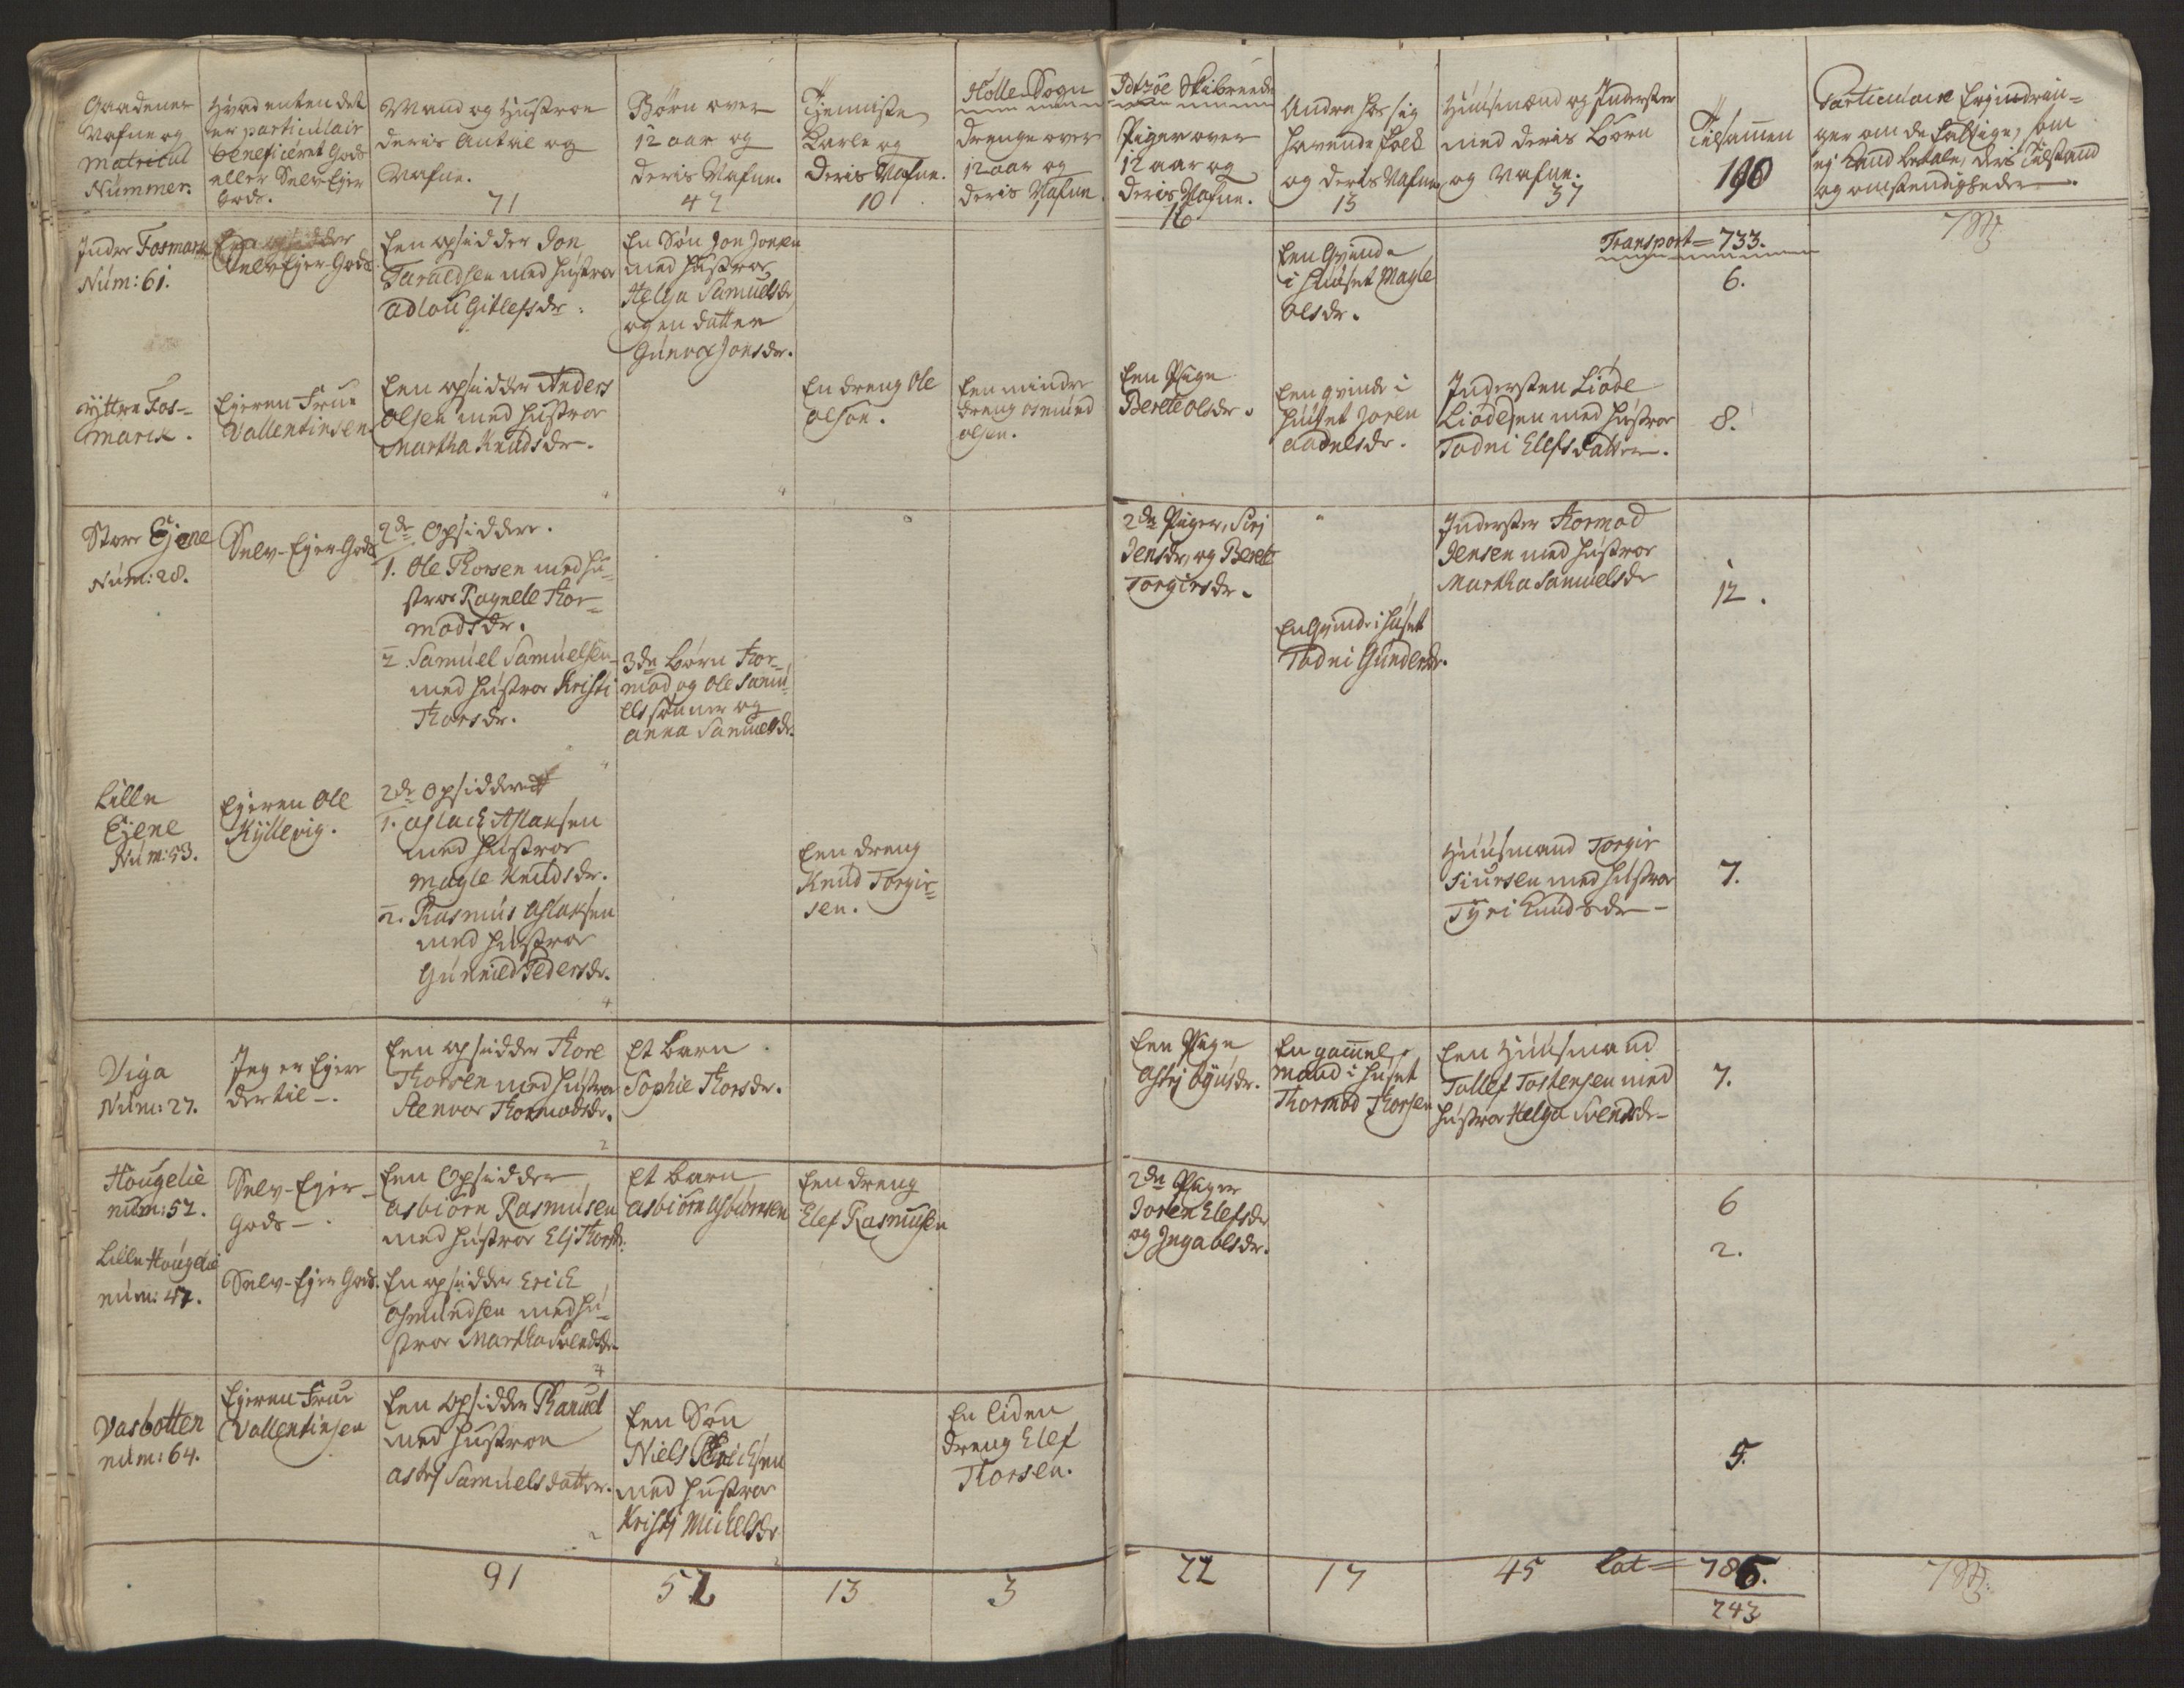 Holle Sogn
Idtzøe Skibreede
Gaadenes
Nafne og
Matricul
Nummer.
Hvad enten det
er particulair
beneficeret Gods
eller Selv Ejer
Gods.
Mand og Hustroe
deris Antal og
Nafne.
71
Børn over
12 aar og
deris Nafne.
47
Tjenniste
Karle og
Deris Nafne.
10
drenge over
12 aar og
deris Nafne
1
Piger over
12 aar og
deris Nafne.
16
Andre hos sig
havende folk
og deris Nafne
15
Huusmænd og Inderster
med deris børn
og Nafne.
37
Tilsammen
190
Particulair Erindrin-
ger om de faldige, om
ej kand betale, deris Tilstand
og omstendigheder.
Transport = 733.
Inder Fosmark
Num: 61.
Selv Ejer Gods
Een opsidder Jon
Taraldsen med hustroe
Adlou Gitlefsdr.
En Søn Jon Jonsen
med hustroe
Helga Samuelsdr
og en datter
Gunvor Jonsdr.
Een Qvinde
i huuset Magle
Olsdr.
6.
Yttre Fos-
marck.
Ejeren Frue
Vallentinsen
Een opsidder Anders
Olsen med hustroe
Martha Knudsdr.
En dreng Ole
Olson.
Een mindre
dreng Osmund
Olsen.
Een Pige
Berete Olsdr.
Een qvinde i
huuset Joren
Aadnesdr.
Indersten Liøde
Liødesen med hustroe
Todni Elefsdatter.
8.
Store Ejene
Num: 28.
Selv-Ejer-Gods
2de Opsiddere.
1. Ole Thorsen med hu-
stroe Ragnele Thor-
modsdr.
2. Samuel Samuelsen
med hustroe Kristi
Thorsdr.
3de børn Thor-
mod og Ole Samu-
elssønner og
Anna Samuelsdr.
2de Piger, Siri
Jensdr, og Berete
Torgirsdr.
En Qvinde i huset
Todni Gundersdr.
Inderster Thormod
Jensen med hustroe
Martha Samuelsdr
12.
Lille
Ejene
Num: 53.
Ejeren Ole
Kyllevig.
2de Opsiddere
1. Aslach Aslaksen
med hustroe
Magle Knudsdr.
2. Rasmus Aslaksen
med hustroe
Gunnild Pedersdr.
Een dreng
Knud Torgir-
sen.
Huusmand Torgir
Siursen med hustroe
Tyri Knudsdr
7.
Viga
Num: 27.
Jeg er Ejere
dertil.
Een opsidder Thore
Thorsen med hustroe
Stenvor Thormodsdr.
Et barn
Sophie Thorsdr.
Een Pige
En gammel
mand i huset
Thormod Thorsen
Een Huusmand
Tollef Tostensen med
hustroe Helga Svendsdr
7.
Hougelie
num: 52.
Selv-Ejer-
Gods.
Een Opsidder
Asbiørn Rasmusen
med hustroe Elj Thorsdr.
Et barn
Asbiørn Asbiørnsen
Een dreng
Elef Rasmusen
2de Piger
Joren Elefsdr
og Inga Olsdr.
6
Lille Hougelie
num: 47.
Selv-Ejer Gods.
En opsidder Erich
Osmundsen med hu-
stroe Martha Svendsdr
2.
Vasbotten
num: 64.
Ejeren Frue
Vallentinsen
Een Opsidder
med hustroe
Samuelsdatter.
Een Søn
Niels
med hustroe
Kristj Mickelsdr
En liden
dreng Elef
Thorsen.
5.
91
52
13
3
22
17
45
Lat = 786.
243